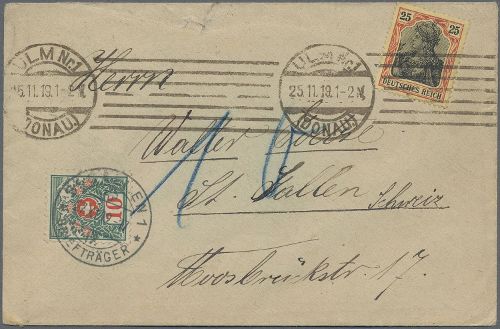 ULM Nr.1
25.11.19.1-2 N.
(DONAU)
ULM Nr.1
25.11.19.1-2 N.
(DONAU)
25 25
DEUTSCHES REICH
Herrn
Walter
10
St. Gallen Schweiz
Moosbrückstr. 17.
10
GALLEN 1
BRIEFTRÄGER